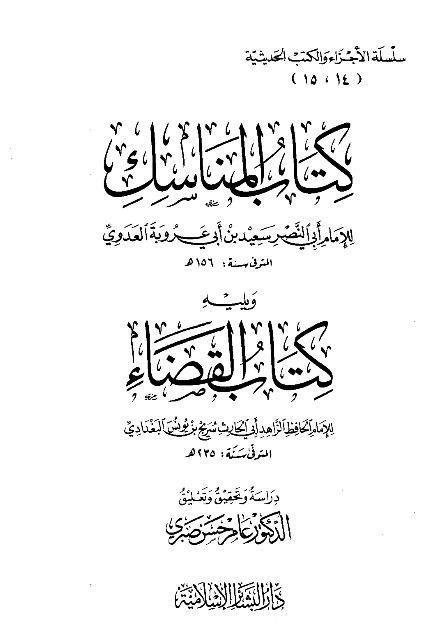 سلسلة الأجزاء والكتب الحديثية
( ١٤ ، ١٥ )
كتاب المناسك
للإمام أبي النضر سعيد بن أبي عروبة العدوي
المتوفى سنة : ١٥٦ هـ
ويليه
كتاب القضاء
للإمام الحافظ الزاهد أبي الحارث سريج بن يونس البغدادي
المتوفى سنة : ٢٣٥ هـ
دراسة وتحقيق وتعليق
الدكتور عامر حسن صبري
دار البشائر الإسلامية